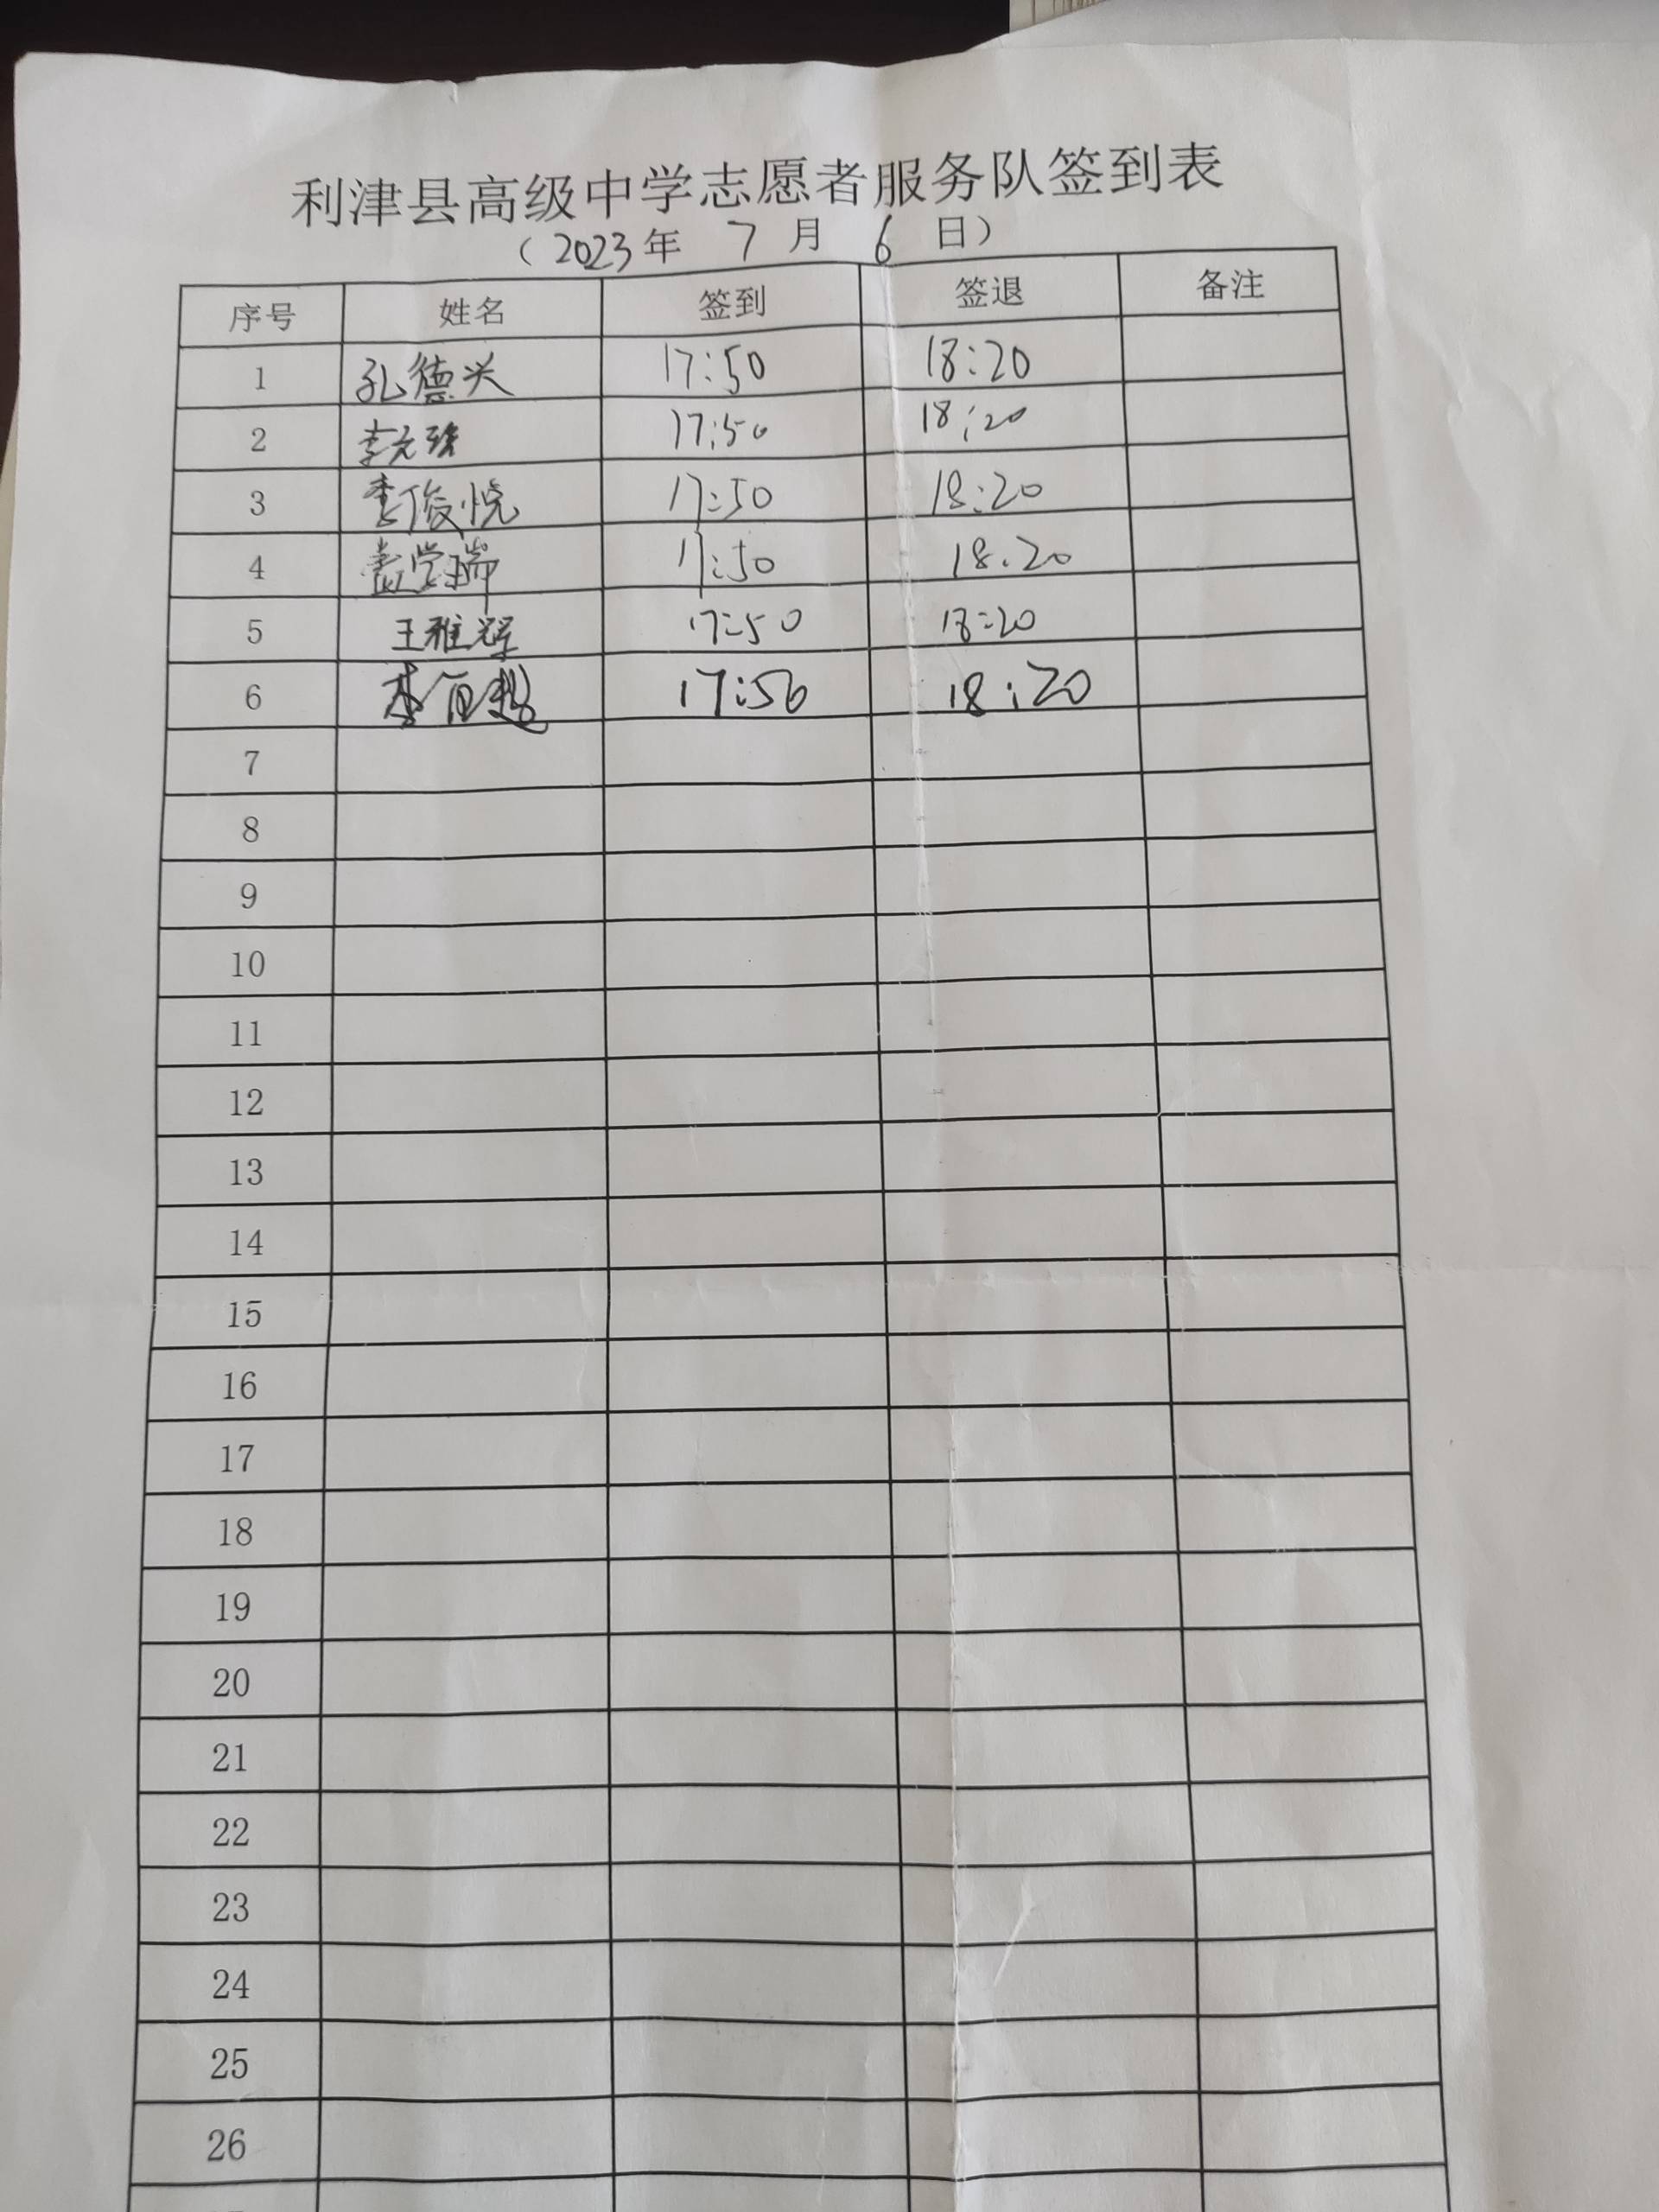 利津县高级中学志愿者服务队签到表
（2023年 7 月 6 日）
序号 姓名 签到 签退 备注
1 孔德兴 17:50 18:20
2 李元 17:50 18:20
3 李俊悦 17:50 18:20
4 盖学瑞 17:50 18:20
5 王雅辉 17:50 18:20
6 李 17:50 18:20
7
8
9
10
11
12
13
14
15
16
17
18
19
20
21
22
23
24
25
26